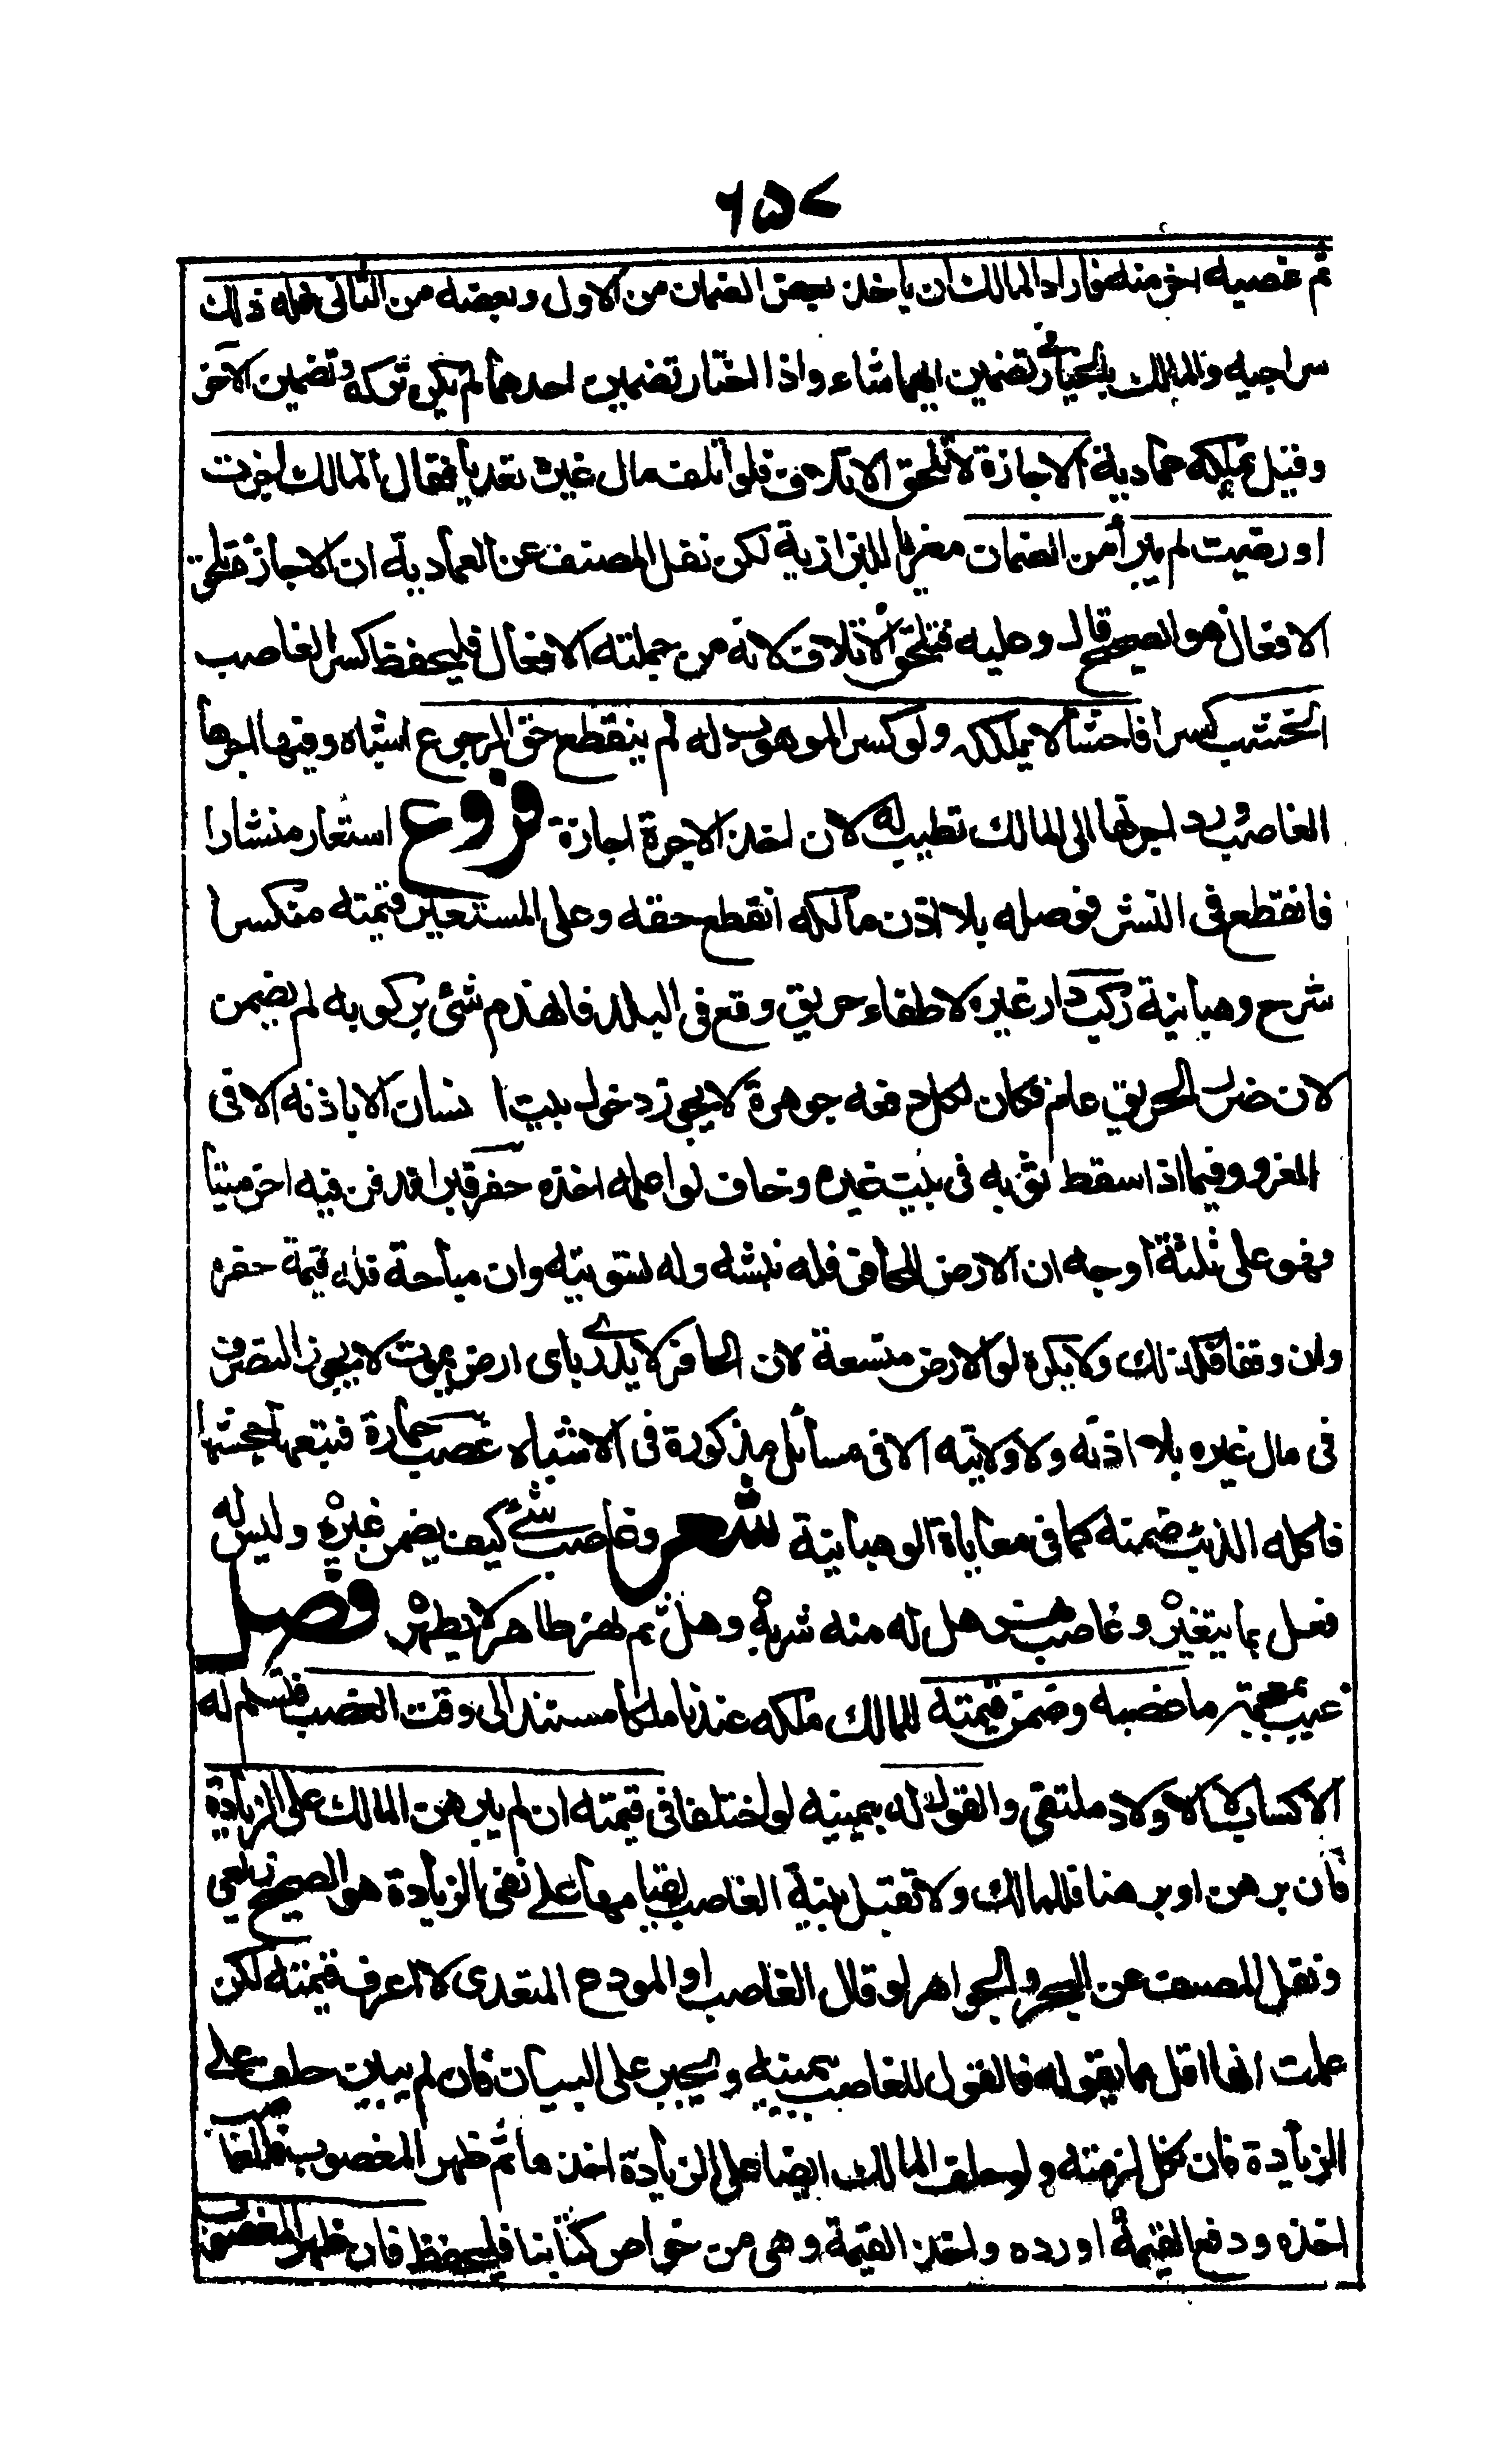 ۶۵۷
ثم غصبه اخر منه فاراد المالك ان ياخذ بعض الضمان من الاول وبعضه من الثانى فله ذلك
سراجيه والمالك بالخيار فى تضمين ايهما شاء واذا اختار تضمين احدهما لم يكن تركه وتضمين الآخر
وقيل يملكه عمادية الاجازة لا تلحق الاتلاف فلو اتلف مال غيره تعديا فقال المالك اجزت
او رضيت لم يبرأ من الضمان مغريا للبزازية لكن نقل المصنف عن العمادية ان الاجازة تلحق
الافعال هو الصحيح قال وعليه فتلحق الاتلاف لانه من جملته الافعال فليحفظ كسر الغاصب
الخشب كسرا فاحشا لا يملكه ولو كسر الموهوب له لم ينقطع حق الرجوع اشباه وفيها اجرها
الغاصب ورد اجرتها الى المالك تطيب له لان اخذ الاجرة اجازة فروع استعار منشارا
فانقطع فى النشر فوصله بلا اذن مالكه انقطع حقه وعلى المستعير قيمته منكسرا
شرح وهبانية ركب دار غيره لاطفاء حريق وقع فى البلد فانهدم شئ بركوبه لم يضمن
لان ضرر الحريق عام فكان لكل دفعه جوهرة لا يجوز دخول بيت ا نسان الا باذنه الا فى
الغزو وفيما اذا سقط ثوبه فى بيت غيره وخاف لو اعلمه اخذه حفر قبرا فدفن فيه اخر ميتا
فهو على ثلثة اوجه ان الارض للحافر فله نبشه وله تسويته وان مباحة فله قيمة حفره
وان وقفا فكذلك ولا يكره لو الارض متسعة لان الحافر لا يدرى باى ارض يموت لا يجوز التصرف
فى مال غيره بلا اذنه ولا ولايته الا فى مسائل مذكورة فى الاشباه غصب حمارة فتبعها جحشها
فاكله الذئب ضمنه كما فى معاياة الوهبانية شعر وغاصب شئ كيف يضمن غيره وليس له
فعل بما يتغير وغاصب هل له منه شربة وهل ثم نهر طاهر لا يطهر فصل
غيب ما غصبه وضمن قيمته للمالك ملكه عندنا ملكا مستندا الى وقت الغصب فتسلم له
الاكساب لا الاولاد ملتقى والقول له بيمينه لو اختلفا فى قيمته ان لم يبرهن المالك على الزيادة
فان برهن او برهنا فللمالك ولا تقبل بينة الغاصب لقيامها على نفى الزيادة هو الصحيح زيلعى
ونقل المصنف عن البحر والجواهر لو قال الغاصب او المودع المتعدى لا اعرف قيمته لكن
علمت انها اقل مما يقوله فالقول للغاصب بيمينه ويجبر على البيان فان لم يبين حلف على
الزيادة فان نكل لزمته ولو حلف المالك ايضا على الزيادة اخذ ها ثم ظهر المغصوب فللغاصب
اخذه ودفع القيمة او رده واخذ القيمة وهى من خواص كتابنا فليحفظ فان ظهر المغصوب